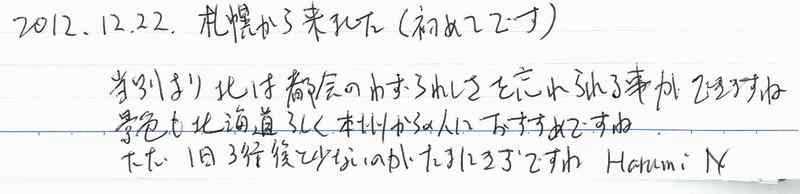 2012.12.22. 札幌から来ました(初めてです)
当別より北は都会のわずらわしさを忘れられる事ができますね
景色も北海道らしく本州からの人におすすめですね
ただ 1日3往復と少ないのがたまにきずですね Harumi N